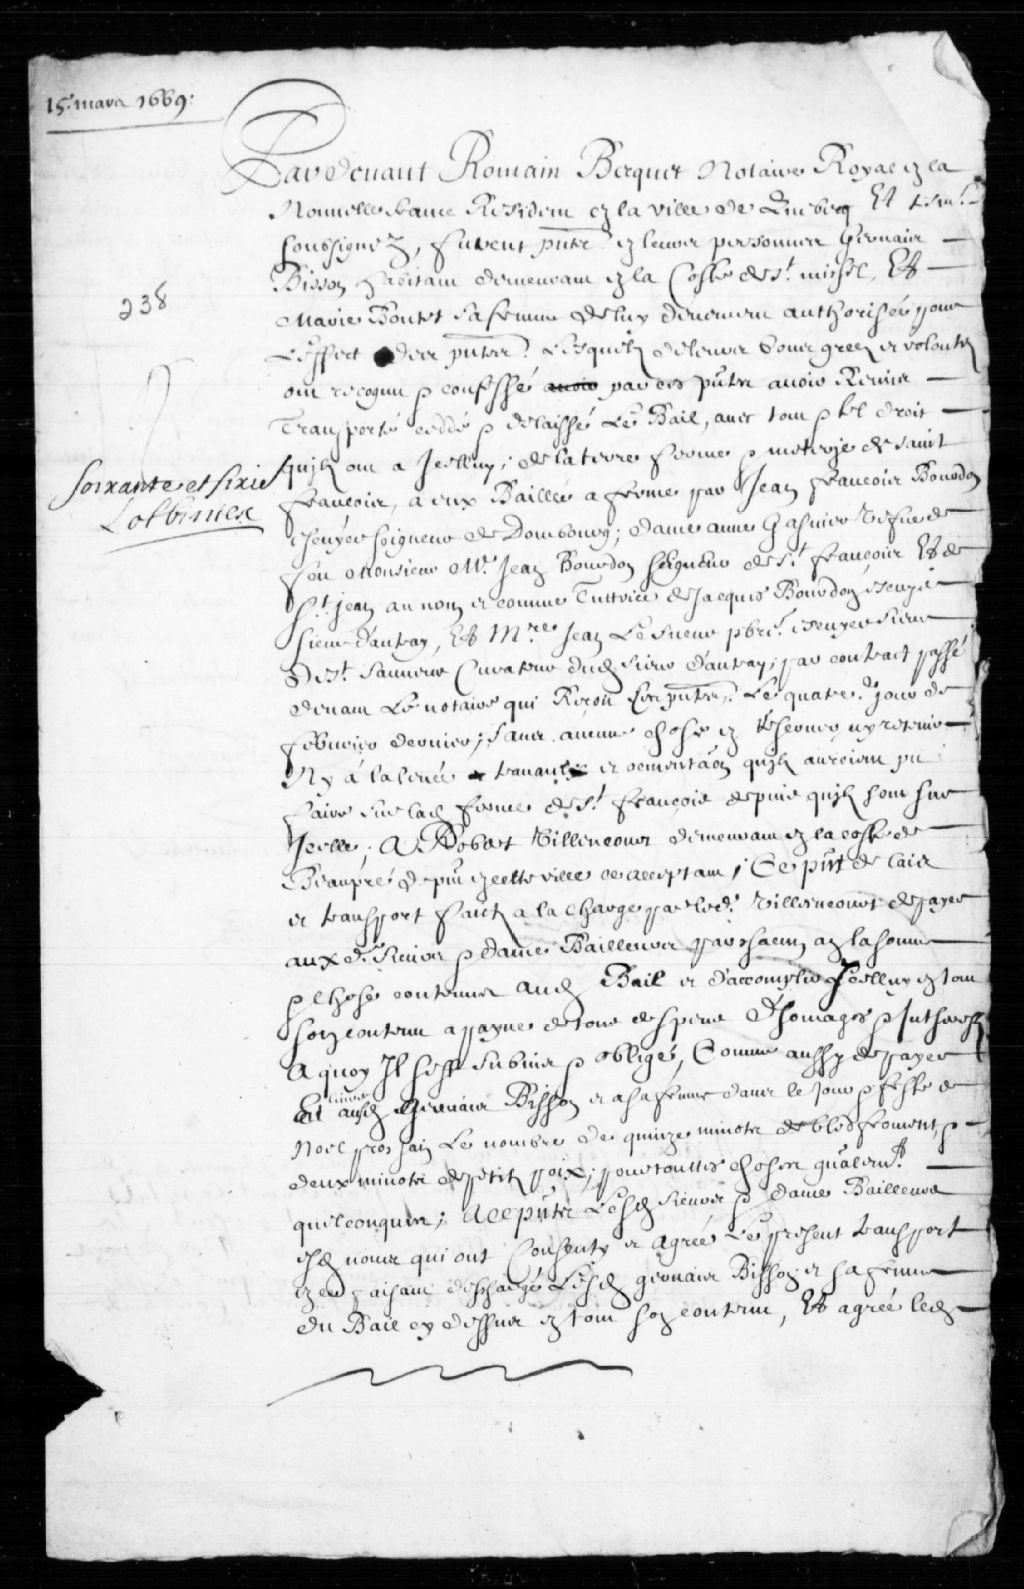 15. mars 1669.
Pardevant Romain Becquet Notaire Royal en la
Nouvelle france Resident en la ville de Quebecq Et tesm.
soubsignez, furent pntz en leurs personnes Gervais
Bisson habitant demeurant en la Coste de St. michel, Et
238
Marie Boutet sa femme de luy duement authorisée pour
L'effect des pntes. Lesquels de leurs bons grez et volontez
ont recognu & confessé avoir par ces pntes avoir Remis
Transporté ceddé & delaissé Le Bail, avec tout & tel droit
qu'ils ont a Jcelluy, de la terre ferme & metayrie de saint
soixante et sixie
Lotbiniere
francois, a eux Baillée a ferme par Jean francois Bourdon
escuyer seigneur de Dombourg; dame anne Gasnier vefve de
feu Monsieur Mr. Jean Bourdon seigneur de St. françois Et de
St. jean au nom et comme Tuttrice de Jacques Bourdon escuyer
sieur d'autray, Et Mre. Jean Le Sueur pbre. escuyer sieur
de St. Sauveur Curateur dud sieur d'autray; par contract passé
devant Le notaire qui Reçoit ces pntes, Le quatre. jour de
febvrier dernier; sans aucune chose en reserver ny retenir
Ny à la levée travaulx et augmentaon qu'ils auroient pu
faire sur lad ferme de St. François depuis qu'ils sont sur
Jcelle, A Robert Villencourt demeurant en la coste de
Beaupré de pnt en cette ville ce acceptant, Ce pnt delais
et transport faict a la charge par led. Villencourt de payer
aux d. sieurs & dame Bailleurs par chacun an la somme
& chose contenues aud Bail et d'accomplir Jcelluy en tout
son contenu a payne de tous despens Dhomages & Intherestz
A quoy Jl s'est submis & obligé, Comme aussy de payer
aud Gervais Bisson et a sa femme dans le jour & feste de
Noel prochain Le nombre de quinze minots de bled froment &
deux minots de petits poix, pour touttes choses generallemt.
quelconques; A ce pntz Lesd sieurs & dame Bailleurs
esd noms qui ont Consenty et agréé Le present transport
et en faisant deschargé Lesd gervais Bisson et sa femme
du Bail cy dessus en tout son contenu, Et agréé led